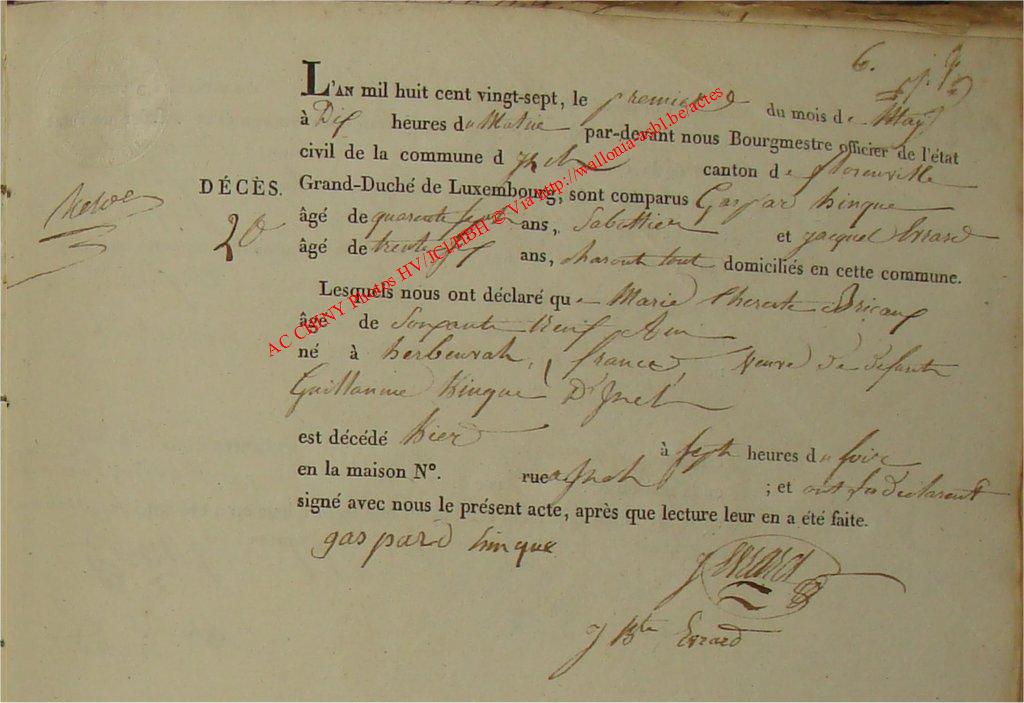 6.
L'AN mil huit cent vingt-sept, le premier du mois de May
à Dix heures du Matin par-devant nous Bourgmestre officier de l'état
civil de la commune d canton de florenville
DÉCÈS. Grand-Duché de Luxembourg, sont comparus Gaspar hinque
20
âgé de quarente sept ans, Sabottier et jacque Evrard
âgé de trente six ans, domiciliés en cette commune.
Lesquels nous ont déclaré que Marie therese
âgé de Soixante neuf Ans
né à france veuve de defunt
Guillaume hinque
est décédé hier à sept heures du soir
en la maison N°. rue ; et ont les declarent
signé avec nous le présent acte, après que lecture leur en a été faite.
gaspard hinque
J Evrard
J Bte Evrard
AC CHINY Photos HV/JCl/HBH © Via http://wallonia-asbl.be/actes